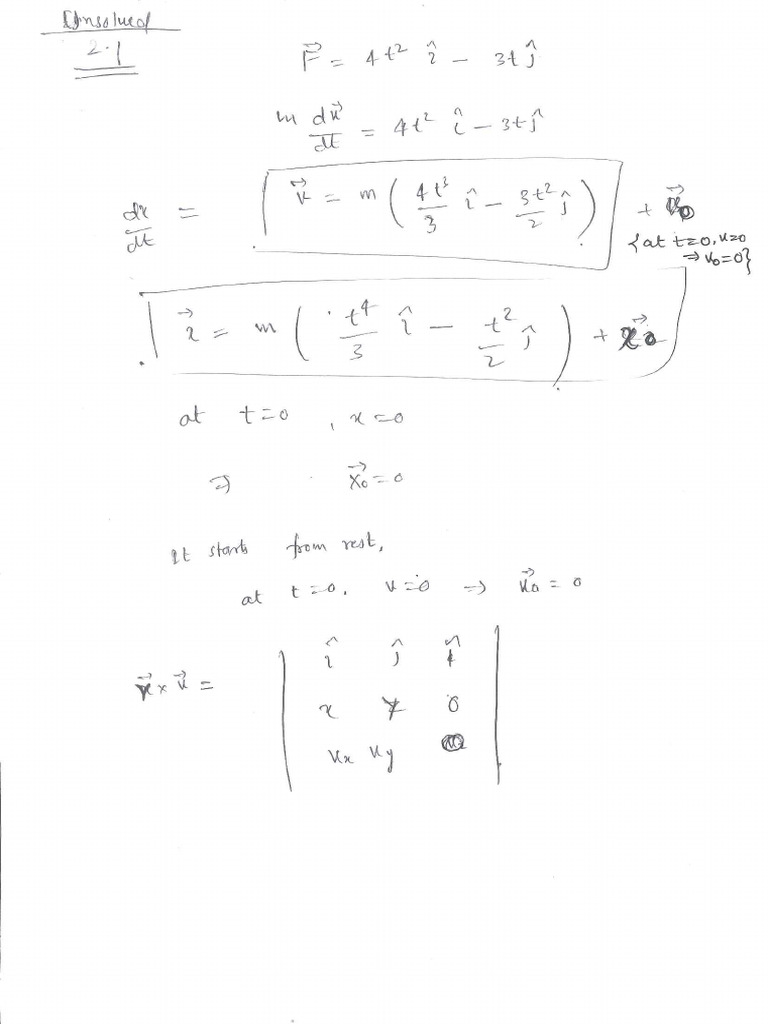 Unsolved
2.1
F⃗ = 4t² î − 3t ĵ
m dv⃗/dt = 4t² î − 3t ĵ
dx/dt = v⃗ = m ( 4t³/3 î − 3t²/2 ĵ ) + v⃗₀
{at t=0, v=0
⇒ v₀=0}
x⃗ = m ( t⁴/3 î − t²/2 ĵ ) + x⃗₀
at t=0 , x=0
⇒ x⃗₀ = 0
It starts from rest,
at t=0, v=0 ⇒ v⃗₀ = 0
r⃗ × v⃗ = | î ĵ k̂
x y 0
vx vy 0 |